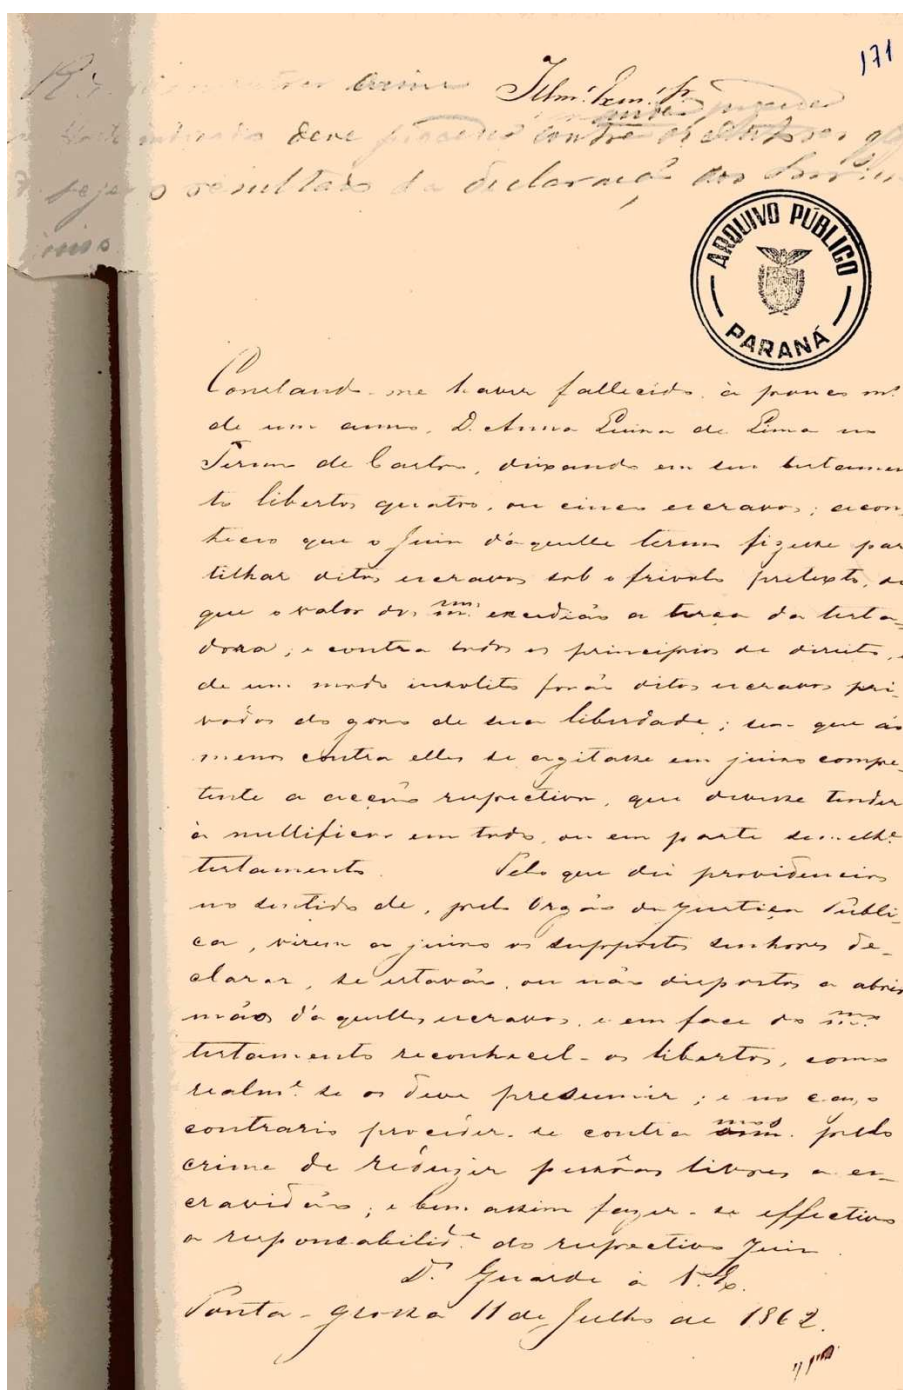 171
Illmo. Exmo. Sr.
crime
deve proceder contra
seja o resultado da declaração dos
ARQUIVO PÚBLICO
PARANÁ
Constando-me haver fallecido, à pouco ms.
de um anno, D. Anna Luiza de Lima no
Termo de Castro, deixando em seu testamen
to libertos quatro, ou cinco escravos; acon
teceo que o Juiz d'aquelle termo fizesse par
tilhar ditos escravos sob o frivolo pretexto, de
que o valor dos mmos. excedião a terça da testa-
dora; e contra todos os principios de direito, e
de um modo insolito forão ditos escravos pri-
vados do gozo de sua liberdade; sem que ao
menos contra elles se agitasse em juizo compe-
tente a acção respectiva, que devesse tender
à nullificar em todo, ou em parte semelhe.
testamento. Pelo que dei providencias
no sentido de, pelo Orgão da Justiça Públi-
ca, virem a juizo os suppostos senhores de-
clarar, se estavão, ou não dispostos a abrir
mãos d'aquelles escravos, e em face do mmo.
testamento reconhecel-os libertos, como
realme. se os deve presumir; e no caso
contrario proceder-se contra mmos. pelo
crime de reduzir pessôas livres a es-
cravidão; e bem assim fazer-se effectiva
a responsabilide. do respectivo Juiz.
Ds. Guarde à V. Ex.
Ponta-grossa 11 de Julho de 1862.